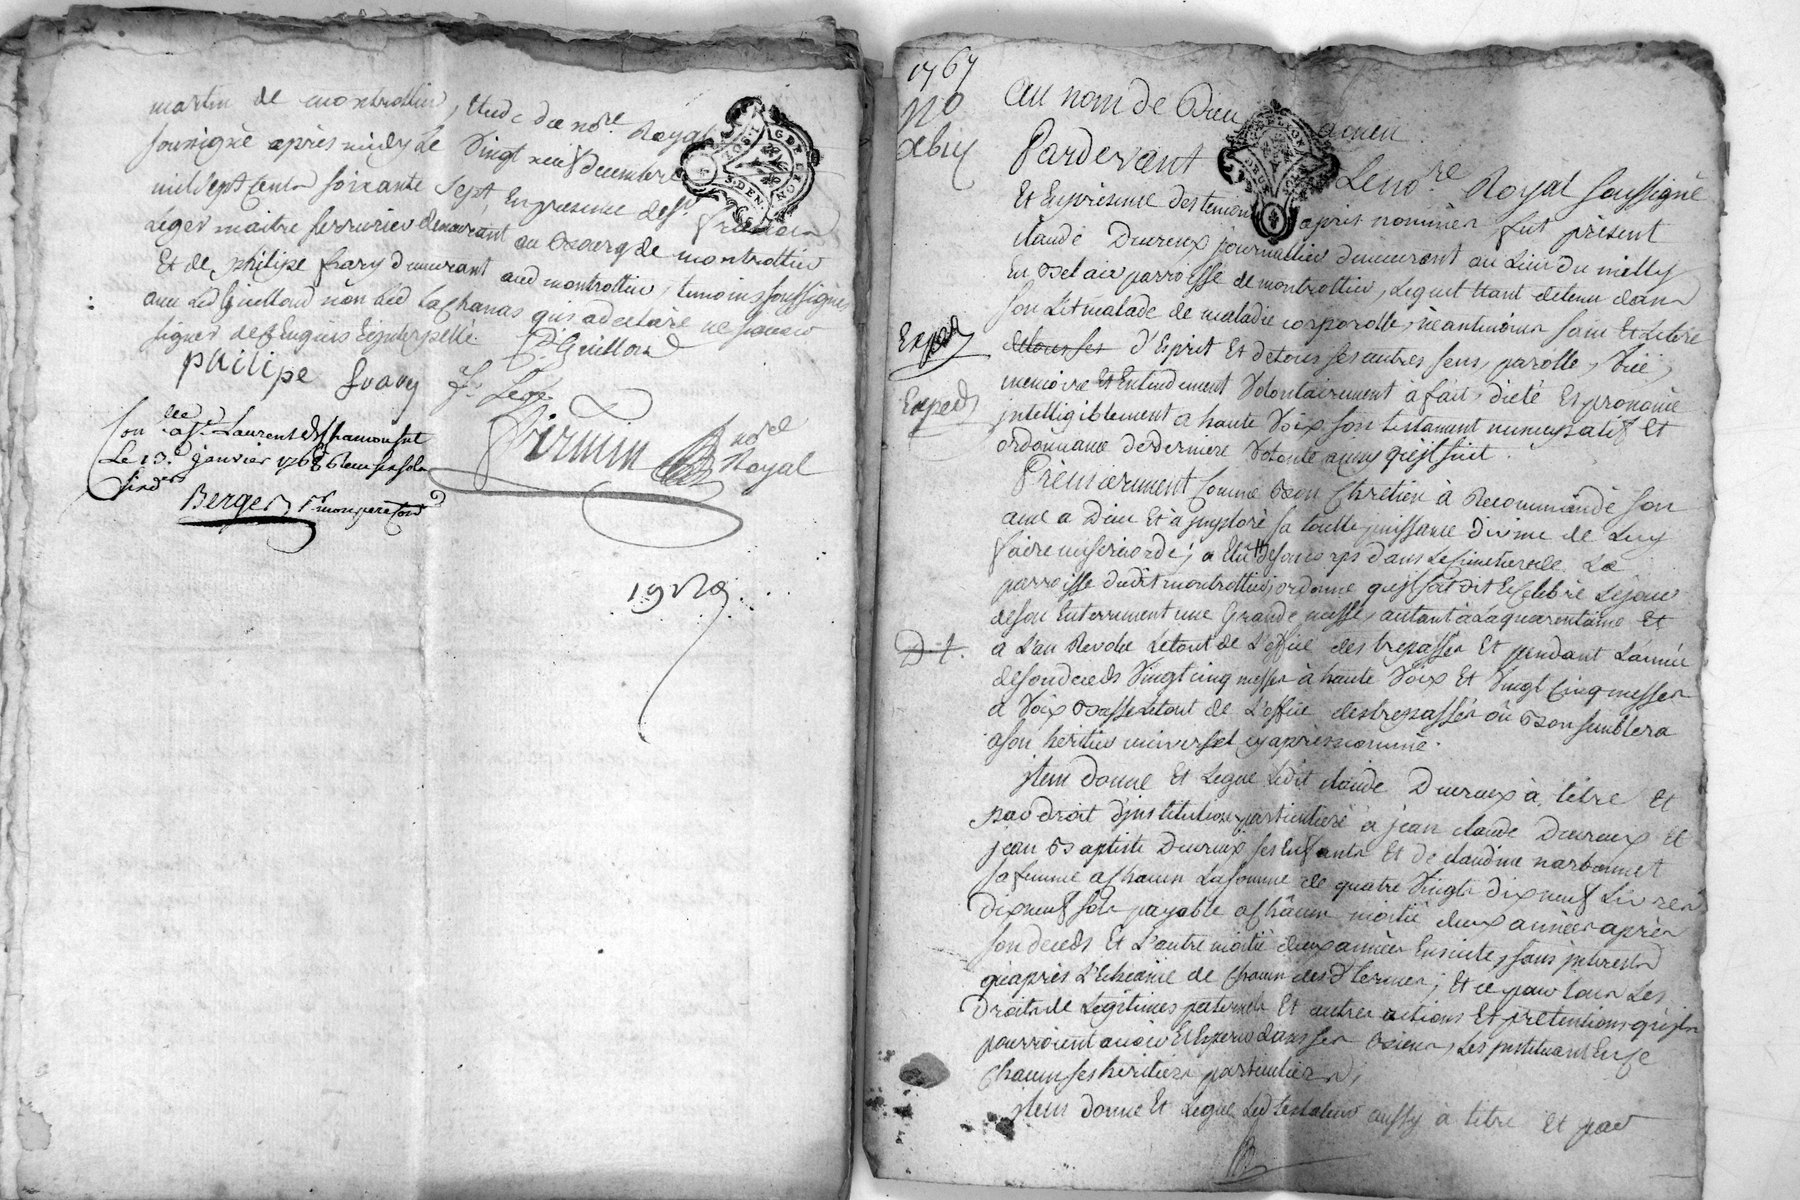 martin de montrottier, Etude du no.re Royal
soussigné après midy le Vingt neuf decembre
mil sept Cents soixante sept En presence de s.r
Leger maitre serrurier demeurant au Bourg de montrottier
Et de philipe fvary demeurant aud montrottier, temoins soussignes
avec Led Guillond non Led Lachanas qui a declaré ne scavoir
signer de ce Enquis Et jnterpellé.
philipe fvary
J. Leger
firmin
no.re Royal
Con.lle a S.t Laurent de Chamousset
Le 13.e janvier 1768
Berger p.r mon pere
1767
Au nom de Dieu amen
Pardevant Le no.re Royal soussigné
Et En présence des temoins après nommés fut présent
claude Ducreux journallier demeurant au Lieu du milly
En Bel air parroisse de montrottier, Lequel Etant detenu dans
son Lit malade de maladie corporelle, néantmoins sain Et Libre
d'Esprit Et de tous ses autres sens, parolle, Vüe,
Exped
memoire Et Entendement Volontairement à fait, dicté Et prononcé
Exped
jntelligiblement a haute Voix son testament nuncupatif Et
ordonnance de derniere Volonté ainsy qu'jl suit.
Premierement Comme Bon Chretien à Recommandé son
ame a Dieu Et à jmploré sa toutte puissance divine de Luy
faire misericorde; a Elu de son corps dans Le Cimetiere de La
parroisse dudit montrottier, ordonne qu'jl soit dit Et Celebré Le jour
de son Enterrement une Grande messe, autant à La quarentaine Et
D t.
a L'an Revolu Le tout de L'office des trepassés Et pendant L'année
de son deceds Vingt cinq messes à haute Voix Et Vingt Cinq messes
a Voix Basse Le tout de L'office des trepassés où Bon semblera
a son heritier universel cy après nommé.
jtem donne Et Legue Ledit claude Ducreux à titre Et
par droit d'jnstitution particuliere à jean claude Ducreux Et
jean Baptiste Ducreux ses Enfants Et de claudine narbonnet
sa femme a Chacun La somme de quatre Vingt dix neuf Livres
dix neuf sols payable a Chacun moitié deux années après
son deceds Et L'autre moitié deux années Ensuite, sans jnterest
qu'après L'Echeance de Chacun desd termes; Et ce pour tous Les
Droits de Legitimes paternels Et autres actions Et pretentions qu'jls
pourroient avoir Et Esperer dans ses Biens, Les jnstituant En ce
Chacun ses heritiers particuliers,
jtem donne Et Legue Led testateur aussy à titre Et par